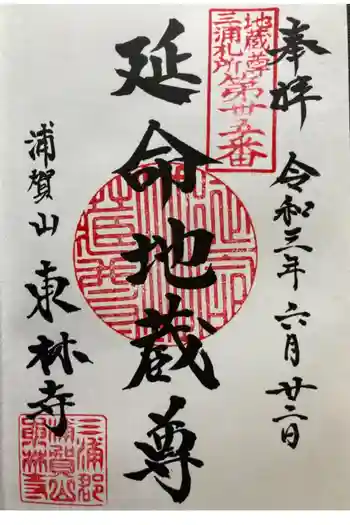 奉拝
令和三年六月廿二日
地蔵尊
三浦札所第廿五番
延命地蔵尊
浦賀山
東林寺
三浦郡
浦賀山
東林寺